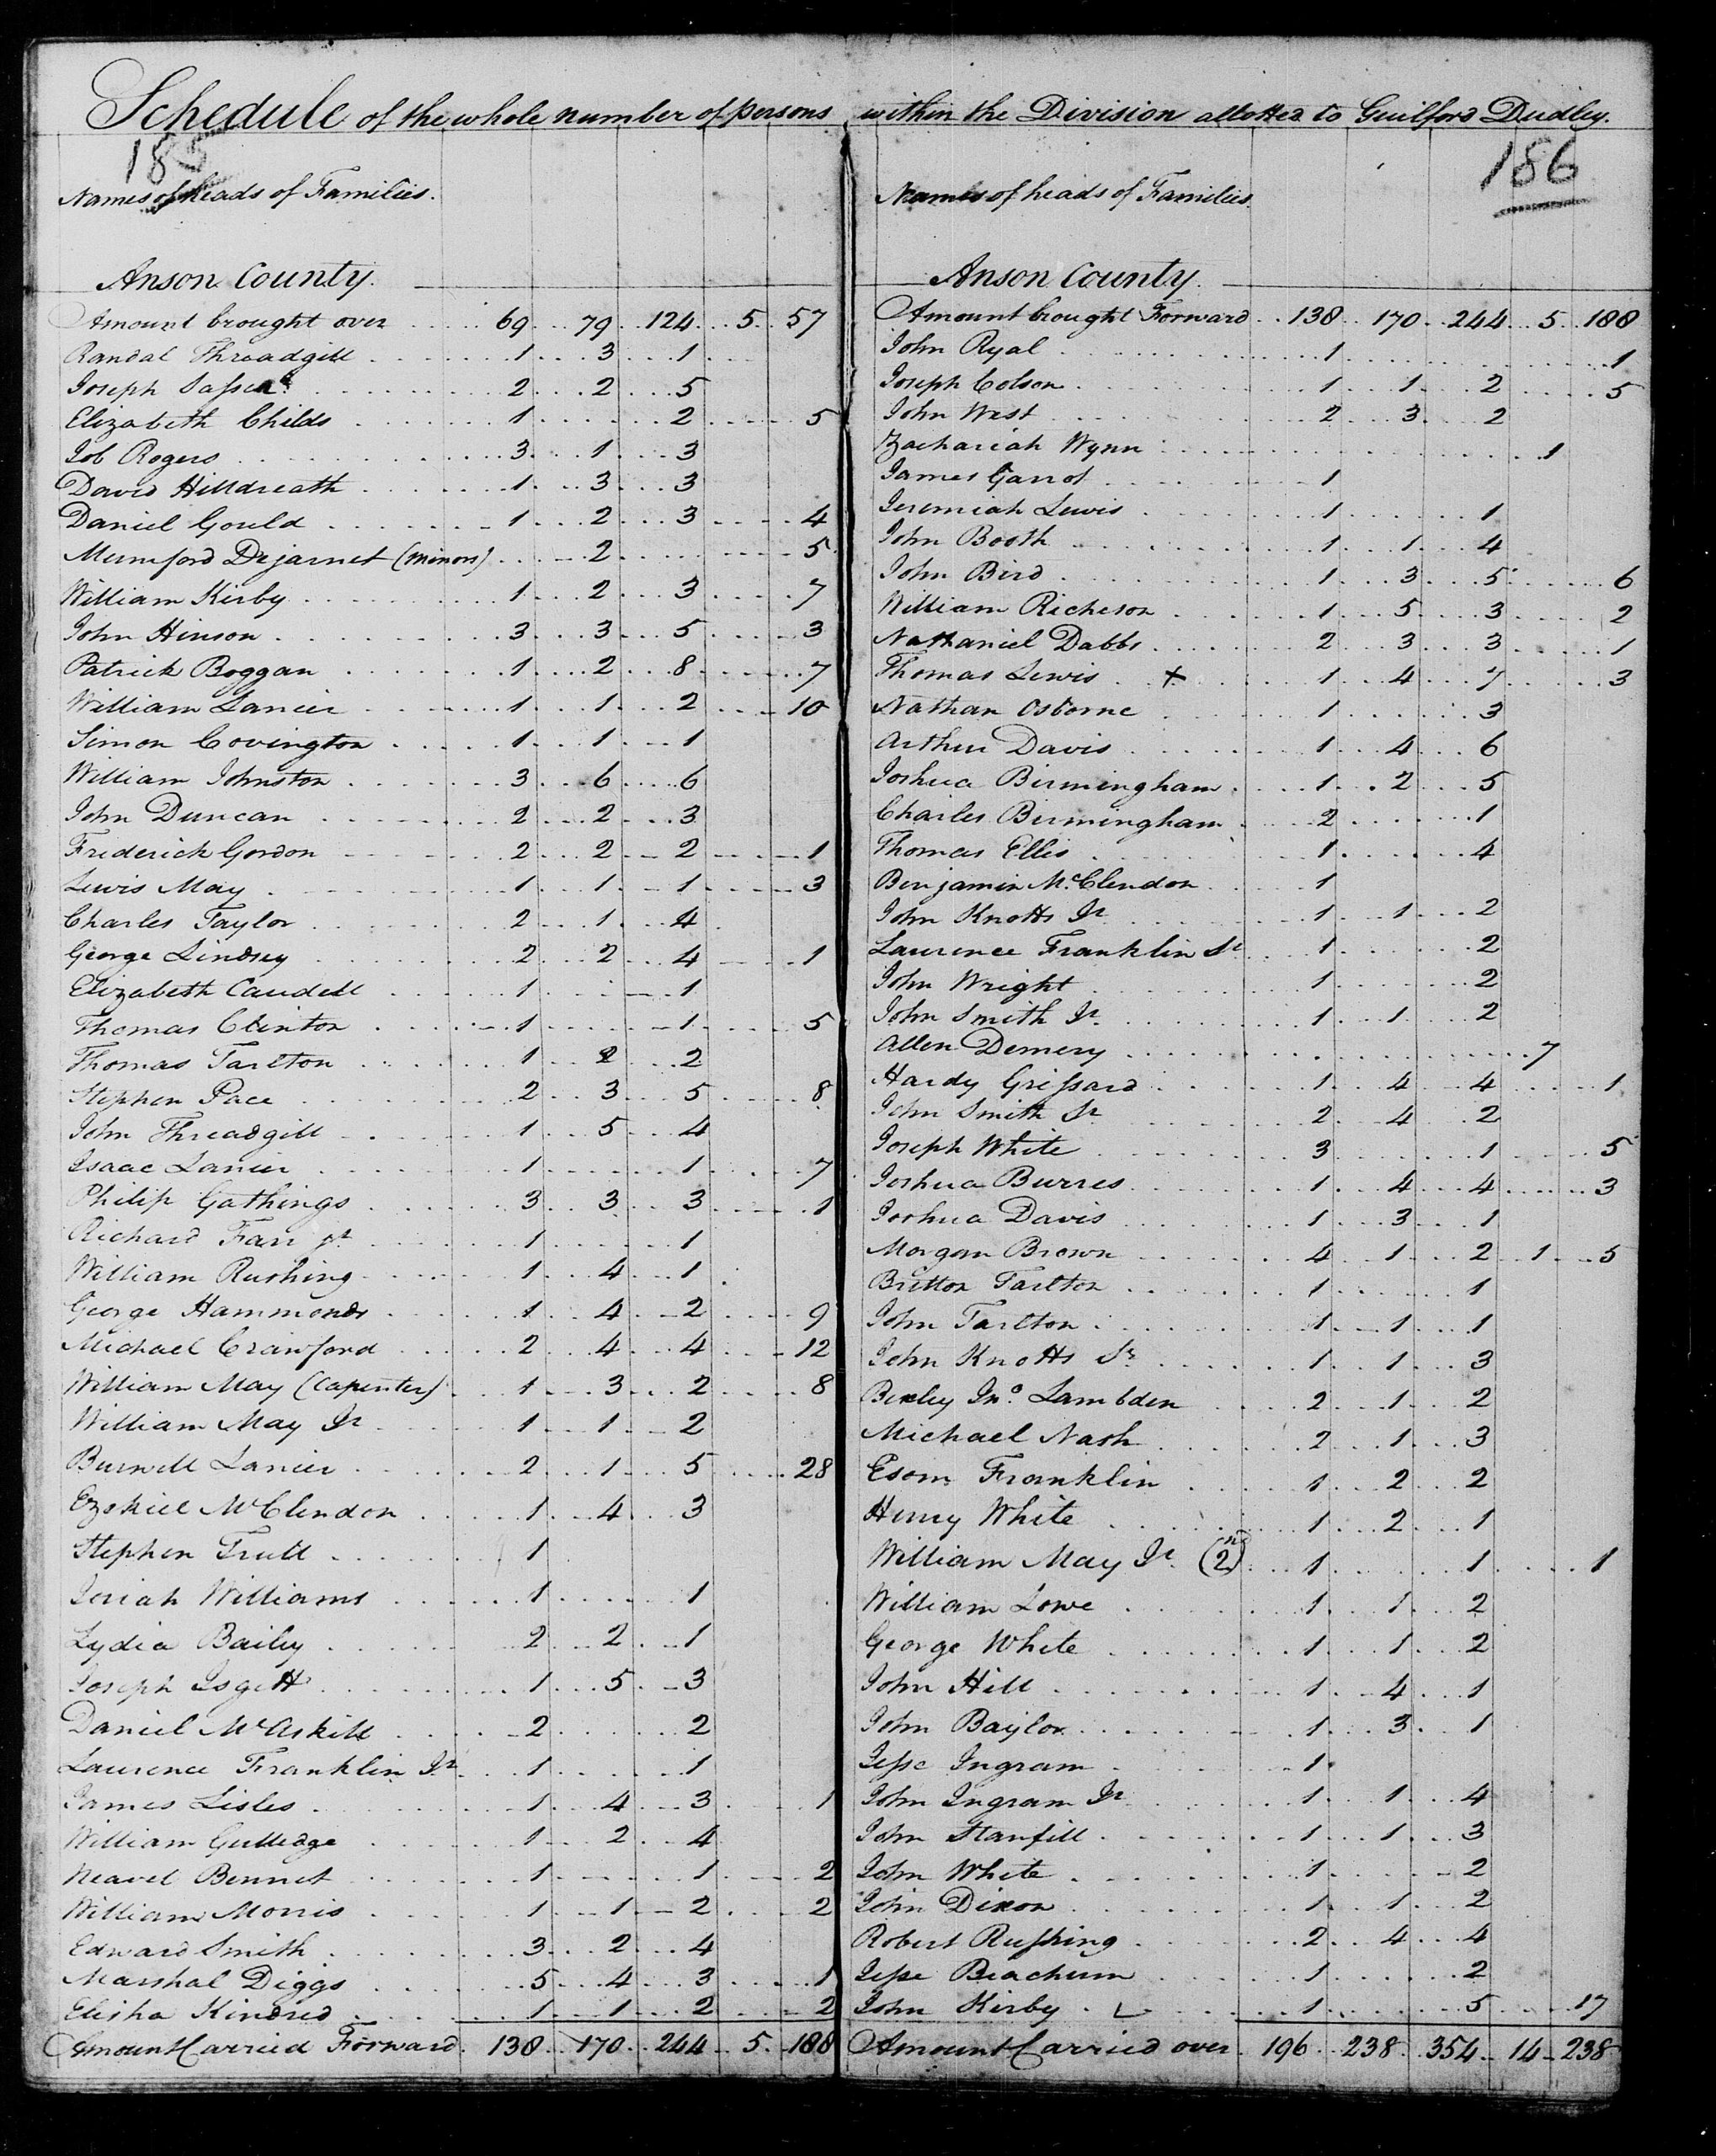 Schedule of the whole number of persons within the Division allotted to Guilford Dudley.
185
Names of heads of Families.
Anson County.
Amount brought over 69 79 124 5 57
Randal Threadgill 1 3 1
Joseph 2 2 5
Elizabeth Childs 1 2 5
Job Rogers 3 1 3
David Hilldreath 1 3 3
Daniel Gould 1 2 3 4
Mumford Dejarnet (minors) 2 5
William Kirby 1 2 3 7
John Hinson 3 3 5 3
Patrick Boggan 1 2 8 7
William Lanier 1 1 2 10
Simon Covington 1 1 1
William Johnston 3 6 6
John Duncan 2 2 3
Friderick Gordon 2 2 2 1
Lewis May 1 1 1 3
Charles Taylor 2 1 4
George Lindsey 2 2 4 1
Elizabeth Caudell 1 1
Thomas Clinton 1 1 5
Thomas Tarlton 1 2 2
Stephen Pace 2 3 5 8
John Threadgill 1 5 4
Isaac Lanier 1 1 7
Philip Gathings 3 3 3 1
Richard Farr jr 1 1
William Rushing 1 4 1
George Hammonds 1 4 2 9
Michael Crawford 2 4 4 12
William May (Capenter) 1 3 2 8
William May Jr 1 1 2
Burwell Lanier 2 1 5 28
Ezekiel McClendon 1 4 3
Stephen Trull 1
Josiah Williams 1 1
Lydia Bailey 2 2 1
Joseph Isgett 1 5 3
Daniel McAskill 2 2
Laurence Franklin Jr 1 1
James Lisles 1 4 3 1
William Gulledge 1 2 4
Neavel Bennet 1 1 2
William Morris 1 1 2 2
Edward Smith 3 2 4
Marshal Diggs 5 4 3 1
Elisha Kindred 1 1 2 2
Amount Carried Forward 138 170 244 5 188
186
Names of heads of Families.
Anson County.
Amount brought Forward 138 170 244 5 188
John Ryal 1 1
Joseph Colson 1 1 2 5
John West 2 3 2
Zachariah Wynn 1
James Garrot 1
Jeremiah Lewis 1 1
John Booth 1 1 4
John Bird 1 3 5 6
William Richeson 1 5 3 2
Nathaniel Dabbs 2 3 3 1
Thomas Lewis + 1 4 7 3
Nathan Osborne 1 3
Arthur Davis 1 4 6
Joshua Birmingham 1 2 5
Charles Birmingham 2 1
Thomas Ellis 1 4
Benjamin McClendon 1
John Knotts Jr 1 1 2
Laurence Franklin Sr 1 2
John Wright 1 2
John Smith Jr 1 1 2
Allen Demery 7
Hardy Grissard 1 4 4 1
John Smith Sr 2 4 2
Joseph White 3 1 5
Joshua Burres 1 4 4 3
Joshua Davis 1 3 1
Morgan Brown 4 1 2 1 5
Britton Tarlton 1 1
John Tarlton 1 1 1
John Knotts Sr 1 1 3
Bexley Jno. Lambden 2 1 2
Michael Nash 2 1 3
Esom Franklin 1 2 2
Henry White 1 2 1
William May Jr (2nd) 1 1 1
William Lowe 1 1 2
George White 1 1 2
John Hill 1 4 1
John Baylor 1 3 1
Jesse Ingram 1
John Ingram Jr 1 1 4
John Stanfill 1 1 3
John White 1 2
John Dixon 1 1 2
Robert Rushing 2 4 4
Jesse Beachum 1 2
John Kirby 1 5 17
Amount Carried over 196 238 354 14 238